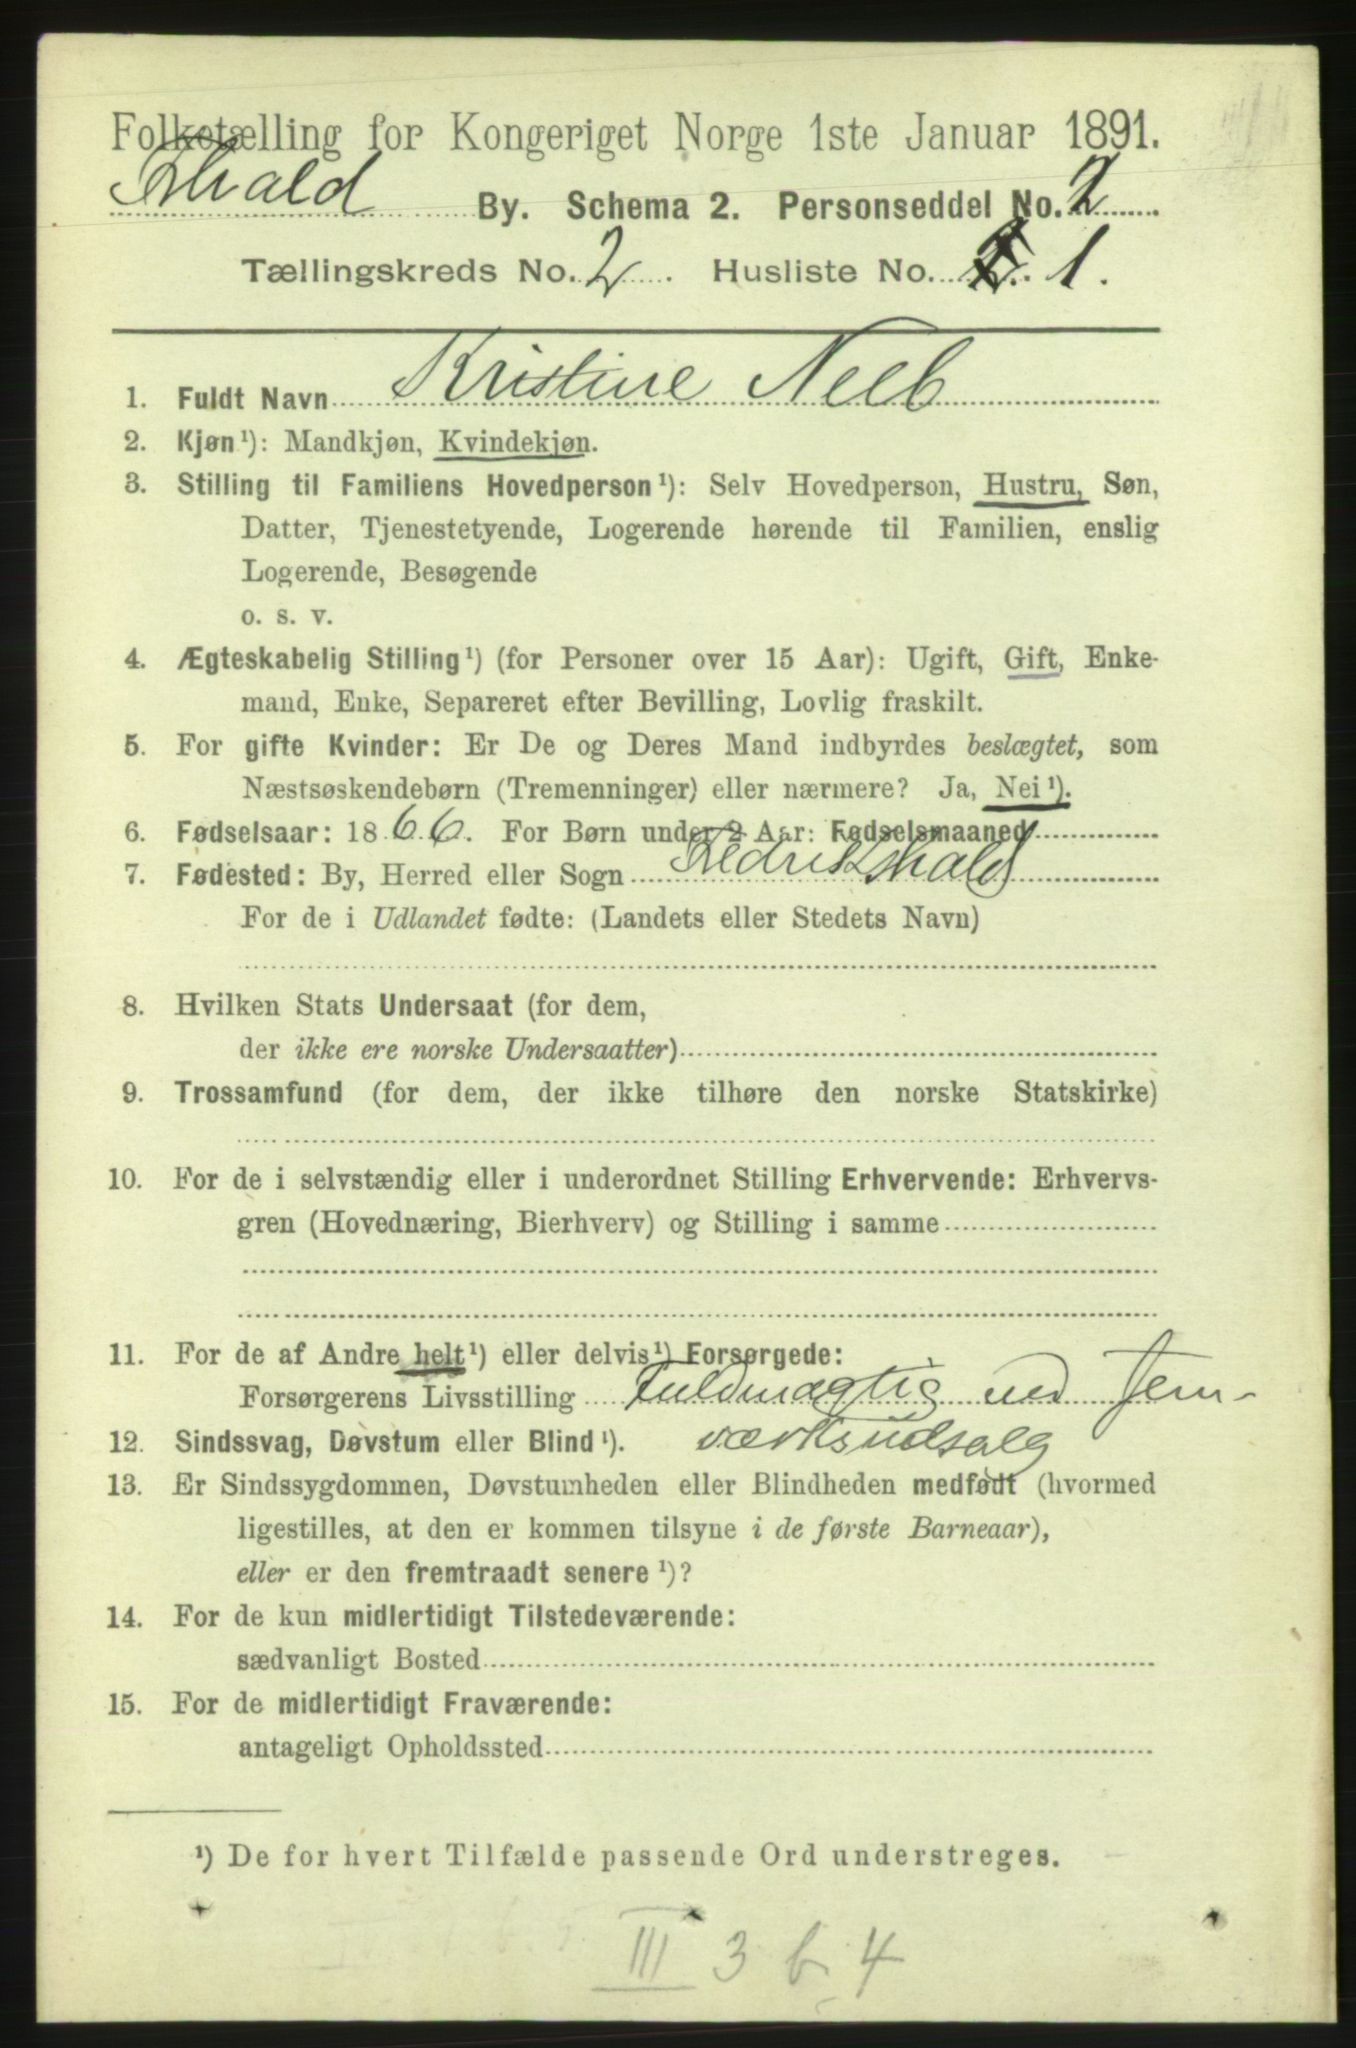 Folketælling for Kongeriget Norge 1ste Januar 1891.
Fhald By. Schema 2. Personseddel No. 2
Tællingskreds No. 2. Husliste No. 1.
1. Fuldt Navn Kristine Neeb
2. Kjøn¹): Mandkjøn, Kvindekjøn.
3. Stilling til Familiens Hovedperson¹): Selv Hovedperson, Hustru, Søn,
Datter, Tjenestetyende, Logerende hørende til Familien, enslig
Logerende, Besøgende
o. s. v.
4. Ægteskabelig Stilling¹) (for Personer over 15 Aar): Ugift, Gift, Enke-
mand, Enke, Separeret efter Bevilling, Lovlig fraskilt.
5. For gifte Kvinder: Er De og Deres Mand indbyrdes beslægtet, som
Næstsøskendebørn (Tremenninger) eller nærmere? Ja, Nei¹).
6. Fødselsaar: 1866. For Børn under 2 Aar: Fødselsmaaned
7. Fødested: By, Herred eller Sogn Fredrikshald
For de i Udlandet fødte: (Landets eller Stedets Navn)
8. Hvilken Stats Undersaat (for dem,
der ikke ere norske Undersaatter)
9. Trossamfund (for dem, der ikke tilhøre den norske Statskirke)
10. For de i selvstændig eller i underordnet Stilling Erhvervende: Erhvervs-
gren (Hovednæring, Bierhverv) og Stilling i samme
11. For de af Andre helt¹) eller delvis¹) Forsørgede:
Forsørgerens Livsstilling Fuldmægtig ved Jern-
værksudsalg
12. Sindssvag, Døvstum eller Blind¹).
13. Er Sindssygdommen, Døvstumheden eller Blindheden medfødt (hvormed
ligestilles, at den er kommen tilsyne i de første Barneaar),
eller er den fremtraadt senere¹)?
14. For de kun midlertidigt Tilstedeværende:
sædvanligt Bosted
15. For de midlertidigt Fraværende:
antageligt Opholdssted
¹) De for hvert Tilfælde passende Ord understreges.
III 3 b 4